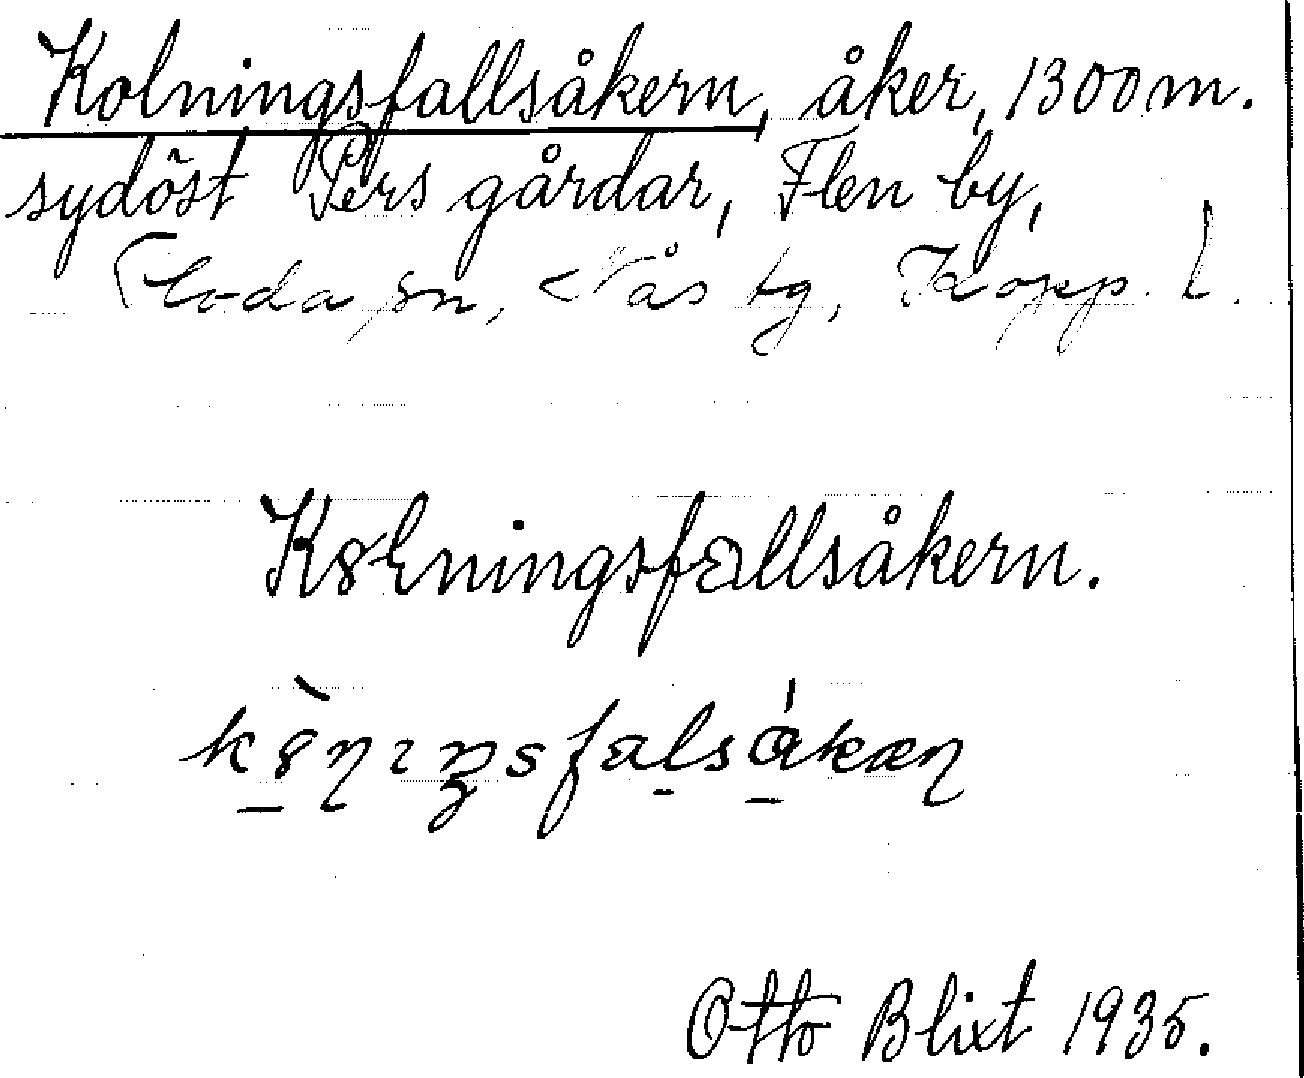 Kolningsfallsåkern, åker, 1300 m.
sydöst Pers gårdar, Flen by,
Floda sn, Nås tg, Kopp. l.
K8lningsfallsåkern.
Otto Blixt 1935.